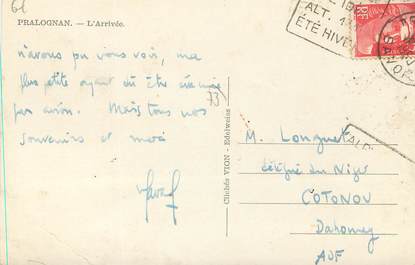 61
PRALOGNAN. — L'Arrivée.
n'avons pu vous voir, ma
plus petite ayant dû être
par avion. Mais tous nos
souvenirs et merci
73
Clichés VION - Edelweiss
ALT. 1
ÉTÉ HIVE
RF
M. Longuet
délégué du Niger
COTONOU
Dahomey
AOF